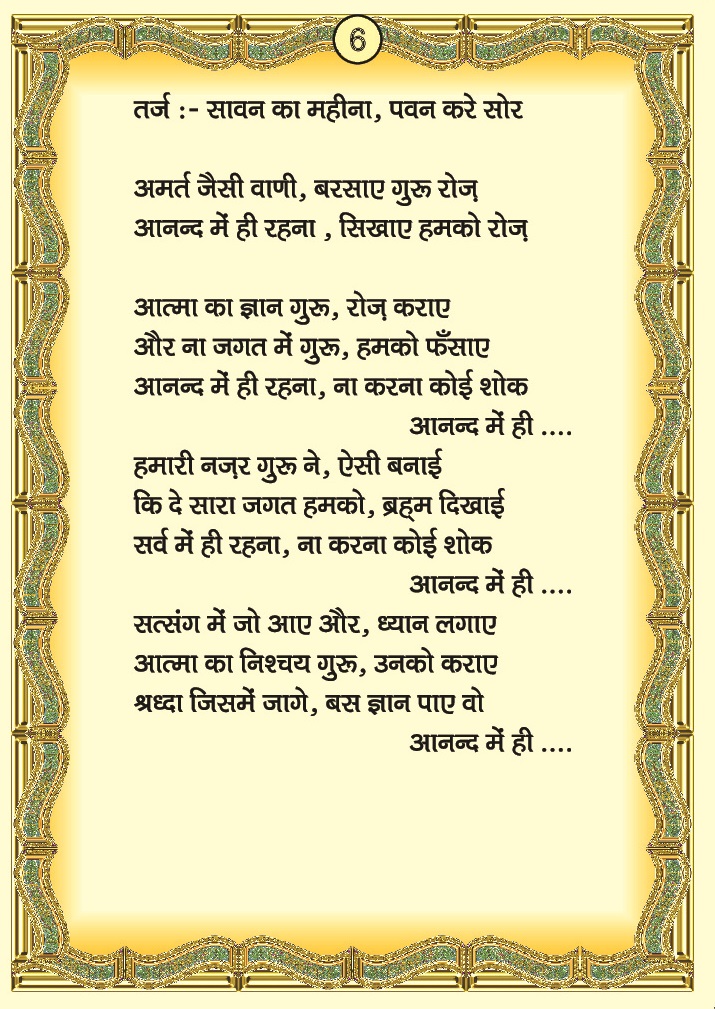 6
तर्ज :- सावन का महीना, पवन करे सोर
अमर्त जैसी वाणी, बरसाए गुरू रोज़
आनन्द में ही रहना , सिखाए हमको रोज़
आत्मा का ज्ञान गुरू, रोज़ कराए
और ना जगत में गुरू, हमको फँसाए
आनन्द में ही रहना, ना करना कोई शोक
आनन्द में ही ....
हमारी नज़र गुरू ने, ऐसी बनाई
कि दे सारा जगत हमको, ब्रह्म दिखाई
सर्व में ही रहना, ना करना कोई शोक
आनन्द में ही ....
सत्संग में जो आए और, ध्यान लगाए
आत्मा का निश्चय गुरू, उनको कराए
श्रध्दा जिसमें जागे, बस ज्ञान पाए वो
आनन्द में ही ....